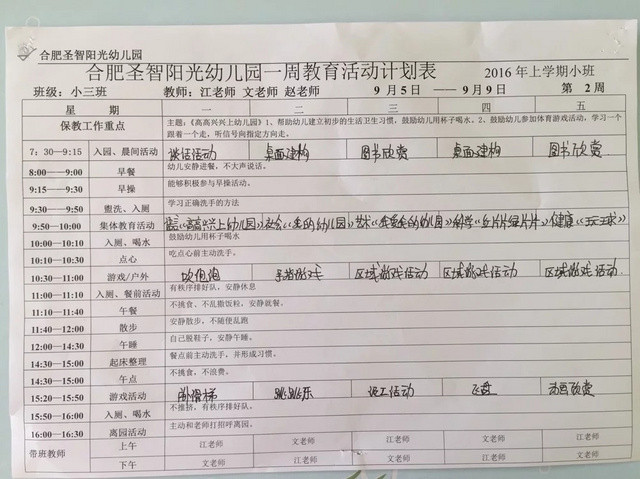 合肥圣智阳光幼儿园
合肥圣智阳光幼儿园一周教育活动计划表 2016年上学期小班
班级：小三班 教师：江老师 文老师 赵老师 9月5日——9月9日 第2周
星期 一 二 三 四 五
保教工作重点 主题：《高高兴兴上幼儿园》1、帮助幼儿建立初步的生活卫生习惯，鼓励幼儿用杯子喝水。2、鼓励幼儿参加体育游戏活动，学习一个
跟着一个走，听信号向指定方向走。
7：30—9:15 入园、晨间活动 谈话活动 桌面建构 图书欣赏 桌面建构 图书欣赏
8:00——9:00 早餐 幼儿安静进餐，不大声说话。
9:15——9:30 早操 能够积极参与早操活动。
9:30——9:50 盥洗、入厕 学习正确洗手的方法
9:50——10:00 集体教育活动 语言《高高兴兴上幼儿园》社会《我的幼儿园》艺术《我爱我的幼儿园》科学《红片片绿片片》健康《玩球》
10:00—10:10 入厕、喝水 鼓励幼儿用杯子喝水
10:10—10:30 点心 吃点心前主动洗手。
10:30—11:00 游戏/户外 吹泡泡 手指游戏 区域游戏活动 区域游戏活动 区域游戏活动
11:00—11:10 入厕、餐前活动 有秩序排好队，安静休息
11:10—11:40 午餐 不挑食、不乱撒饭粒，安静就餐。
11:40—12:00 散步 安静散步，不随便乱跑
12:00—14:30 午睡 自己脱鞋子，安静午睡。
14:30—15:00 起床整理 餐点前主动洗手，并形成习惯。
14:30—15:00 午点 不挑食，不浪费。
15:20—15:50 游戏活动 滑滑梯 跳跳乐 泥工活动 动画欣赏
15:50—16:00 入厕、喝水 不推挤，有秩序排好队。
16:00—16:30 离园活动 主动和老师打招呼离园。
带班教师 上午 江老师 文老师 江老师 文老师 江老师
下午 文老师 江老师 文老师 江老师 文老师